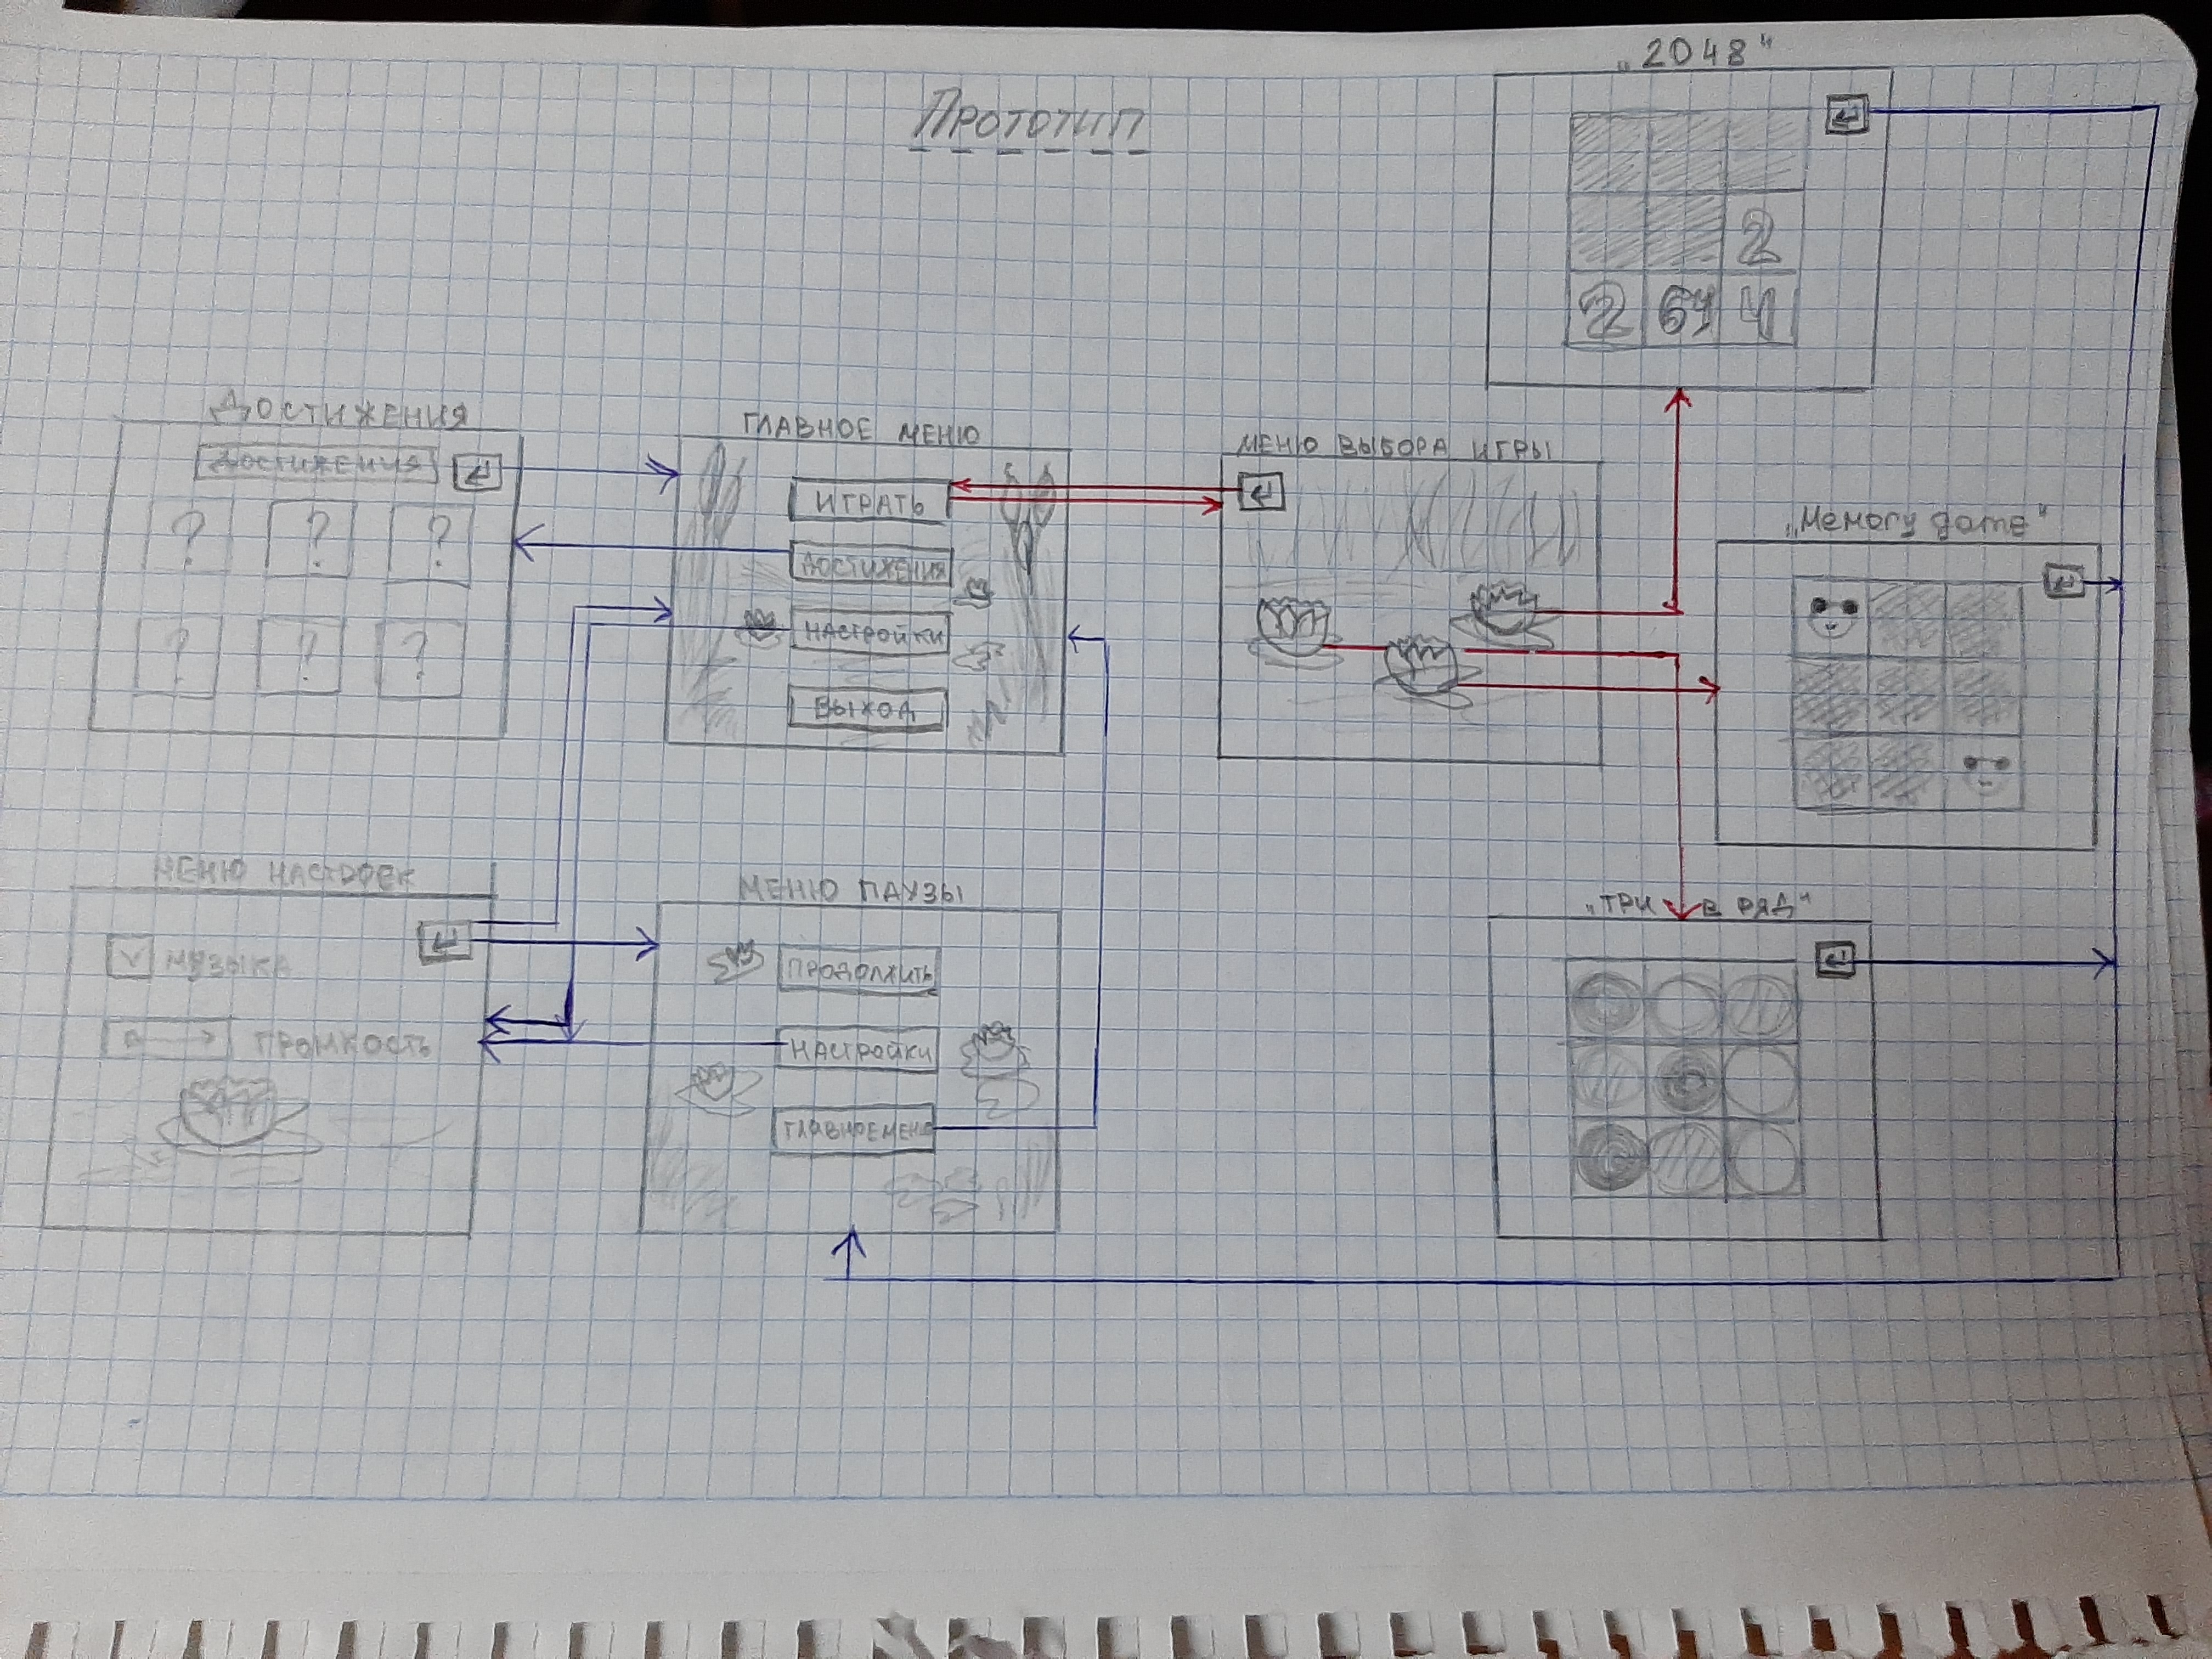 Прототип
„2048“
2
2 64 4
ДОСТИЖЕНИЯ
ДОСТИЖЕНИЯ
? ? ?
? ? ?
ГЛАВНОЕ МЕНЮ
ИГРАТЬ
ДОСТИЖЕНИЯ
НАСТРОЙКИ
ВЫХОД
МЕНЮ ВЫБОРА ИГРЫ
„Memory game“
МЕНЮ НАСТРОЕК
V МУЗЫКА
ГРОМКОСТЬ
МЕНЮ ПАУЗЫ
ПРОДОЛЖИТЬ
НАСТРОЙКИ
ГЛАВНОЕ МЕНЮ
„ТРИ В РЯД“